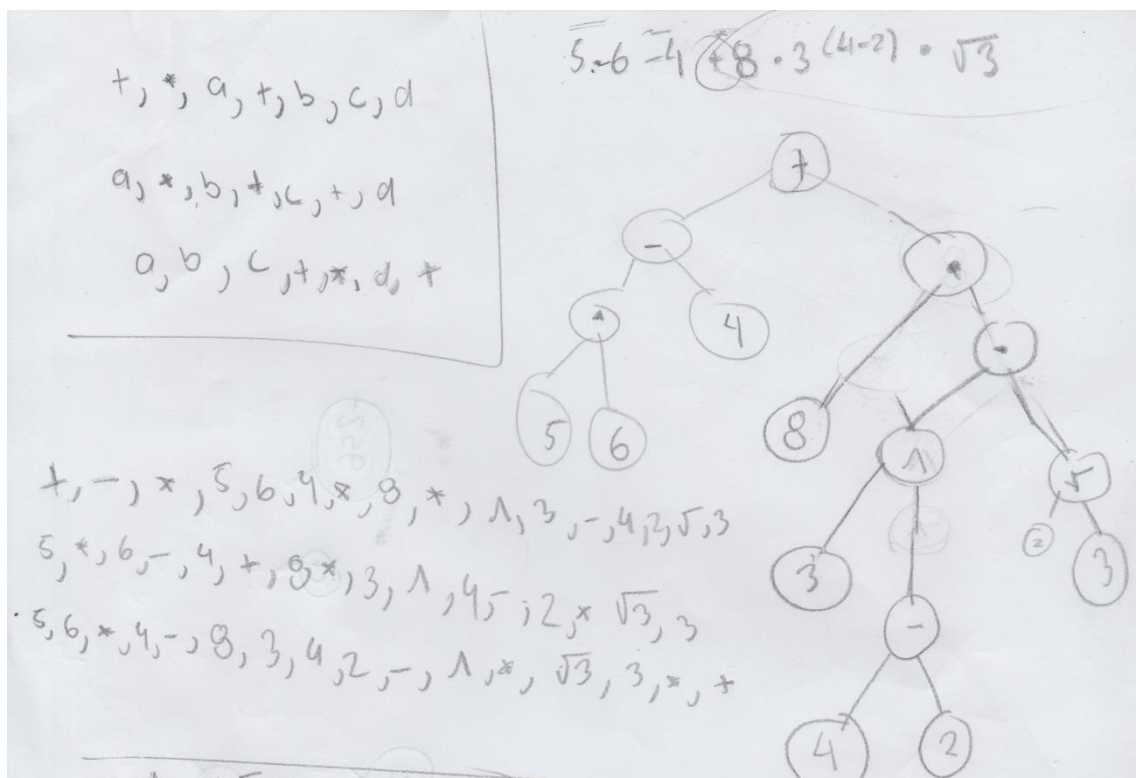 +, *, a, +, b, c, d
a, *, b, +, c, +, d
a, b, c, +, *, d, +
5·6-4+8·3^(4-2)·√3
+
-
*
*
4
·
5
6
8
^
√
2
3
3
-
4
2
+, -, *, 5, 6, 4, *, 8, *, ^, 3, -, 4, 2, √, 3
5, *, 6, -, 4, +, 8, *, 3, ^, 4, -, 2, * √3, 3
5, 6, *, 4, -, 8, 3, 4, 2, -, ^, *, √3, 3, *, +